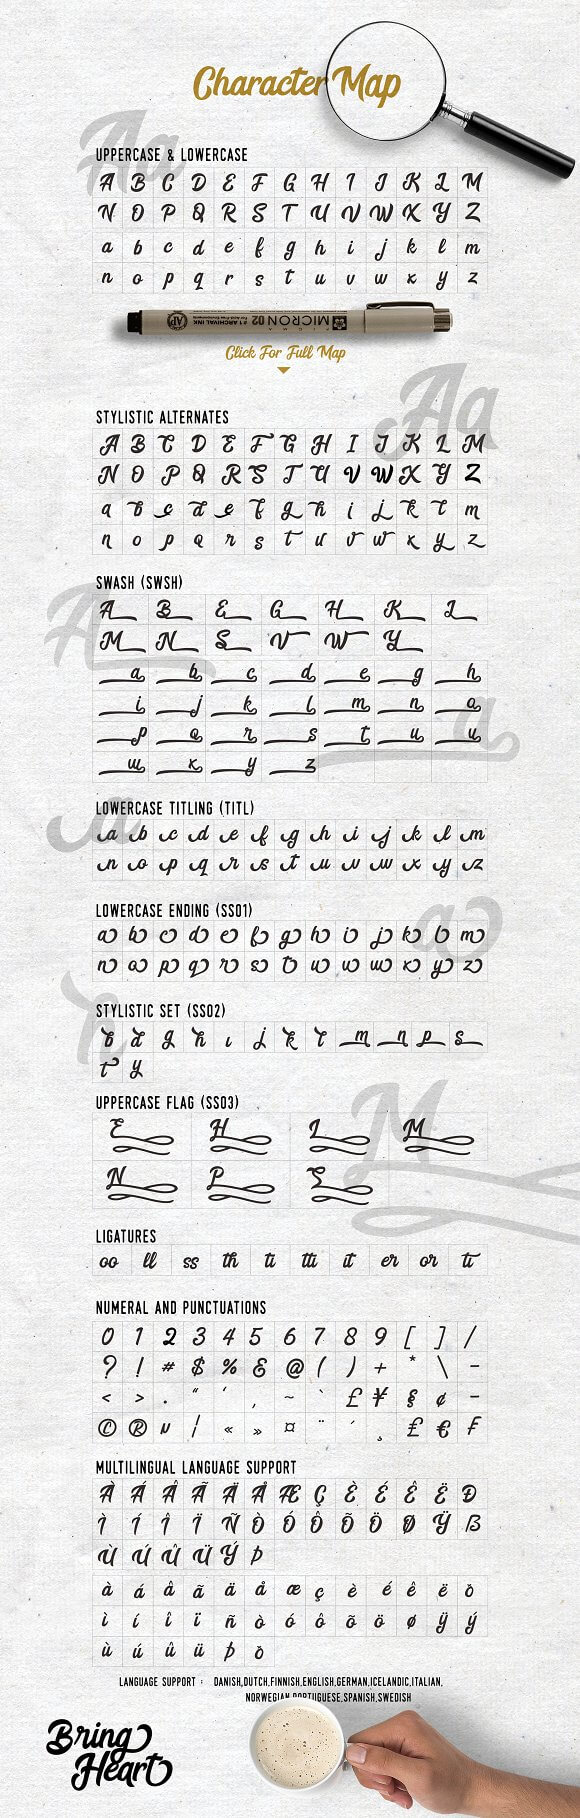 Character Map
Aa
UPPERCASE & LOWERCASE
A B C D E F G H I J K L M
N O P Q R S T U V W X Y Z
a b c d e f g h i j k l m
n o p q r s t u v w x y z
MICRON 02
#1 ARCHIVAL INK
AP
Click For Full Map
Aa
STYLISTIC ALTERNATES
A B C D E F G H I J K L M
N O P Q R S T U V W X Y Z
a b c d e f g h i j k l m
n o p q r s t u v w x y z
SWASH (SWSH)
A B E G H K L
M N S V W Y
a b c d e g h
i j k l m n o
p q r s t u u
w x y z
A
a
LOWERCASE TITLING (TITL)
a b c d e f g h i j k l m
n o p q r s t u v w x y z
a
LOWERCASE ENDING (SS01)
a b c d e f g h i j k l m
n o p q r s t u v w x y z
a
STYLISTIC SET (SS02)
b d g h i j k l m n p s
t y
h
UPPERCASE FLAG (SS03)
E H L M
N P S
M
LIGATURES
oo ll ss th ti tti it er or ti
NUMERAL AND PUNCTUATIONS
0 1 2 3 4 5 6 7 8 9 [ ] /
? ! # $ % & @ ( ) + * \ -
< > . “ ‘ , ~ ` £ ¥ § ¢ -
© ® / « » ¤ ¨ ´ ¸ £ €
MULTILINGUAL LANGUAGE SUPPORT
À Á Â Ã Ä Å Æ Ç È É Ê Ë Ð
Ì Í Î Ï Ñ Ò Ó Ô Õ Ö Ø Ÿ ß
Ù Ú Û Ü Ý Þ
à á â ã ä å æ ç è é ê ë ò
ì í î ï ñ ò ó ô õ ö ø ÿ ý
ù ú û ü þ ò
LANGUAGE SUPPORT : DANISH,DUTCH,FINNISH,ENGLISH,GERMAN,ICELANDIC,ITALIAN,
NORWEGIAN,PORTUGUESE,SPANISH,SWEDISH
Bring
Heart